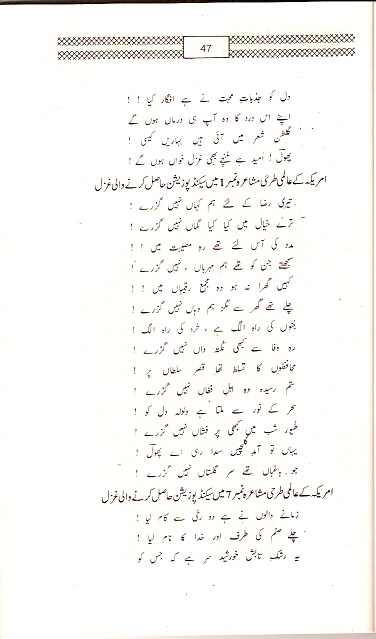 47
دل کو جذباتِ محبت نے ہے افگار کیا !
اپنے اس درد کا وہ آپ ہی درماں ہوں گے
گلشنِ شعر میں آئی ہیں بہاریں کیسی !
پھولؔ ! اُمید ہے غنچے بھی غزل خواں ہوں گے !
امریکہ کے عالمی طرحی مشاعرہ نمبر 1 میں سیکنڈ پوزیشن حاصل کرنے والی غزل
تیری رضا کے لئے ہم کہاں نہیں گزرے !
ترے خیال میں کیا کیا گماں نہیں گزرے !
مدد کی آس لئے تھے رہِ مصیبت میں !
سمجھتے جن کو تھے ہم مہرباں ، نہیں گزرے !
کہیں گھرا نہ ہو وہ مجمعِ رقیباں میں !
چلے تھے گھر سے مگر ہم وہاں نہیں گزرے !
جنوں کی راہ الگ ہے ، خرد کی راہ الگ !
رہِ وفا سے کبھی نکتہ داں نہیں گزرے !
محافظوں کا تسلط تھا قصرِ سلطاں پر !
ستم رسیدہ وہ اہلِ فغاں نہیں گزرے !
سحر کے نور سے ملتا ہے ولولہ دل کو !
طیور شب میں کبھی پر فشاں نہیں گزرے !
یہاں تو آمدِ گلچیں سدا رہی اے پھولؔ !
جو باغباں تھے سرِ گلستاں نہیں گزرے !
امریکہ کے عالمی طرحی مشاعرہ نمبر 7 میں سیکنڈ پوزیشن حاصل کرنے والی غزل
زمانے والوں نے ہے دو رخی سے کام لیا !
چلے صنم کی طرف اور خدا کا نام لیا !
یہ رشکِ تابشِ خورشید سر ہے کہ جس کو